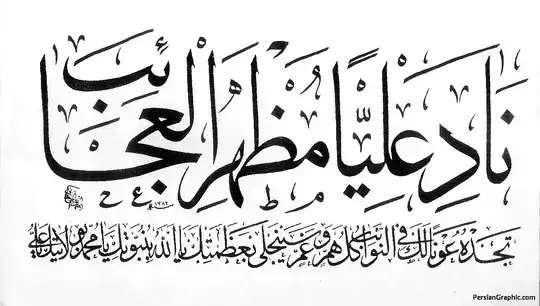 نَادِ عَلِيًّا مَظْهَرَ الْعَجَائِبِ
تجده عونا لك في النوائب كل هم وغم سينجلي بعظمتك يا الله بنبوتك يا محمد بولايتك يا علي
١٣٨٢
PersianGraphic.com